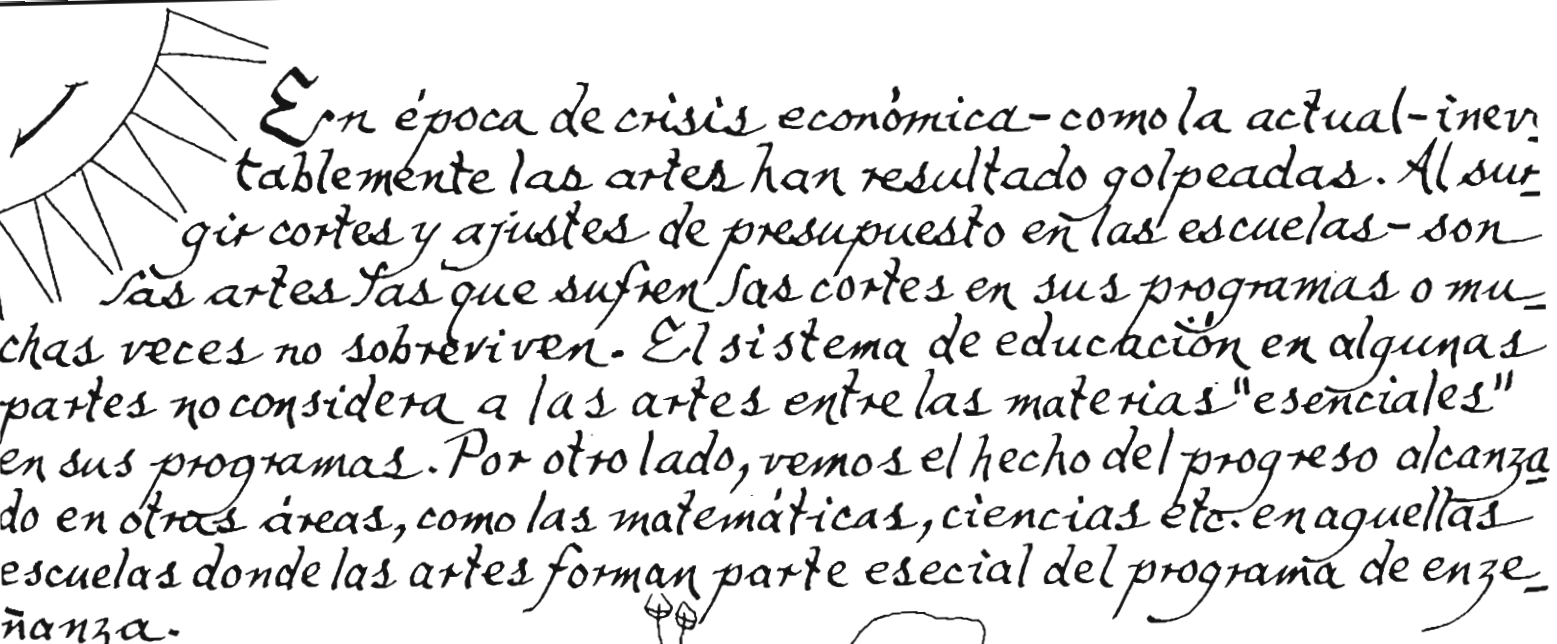 En época de crisis económica-como la actual-inevi
tablemente las artes han resultado golpeadas. Al sur-
gir cortes y ajustes de presupuesto en las escuelas-son
las artes las que sufren las cortes en sus programas o mu-
chas veces no sobreviven. El sistema de educación en algunas
partes no considera a las artes entre las materias "esenciales"
en sus programas. Por otro lado, vemos el hecho del progreso alcanza-
do en otras áreas, como las matemáticas, ciencias etc. en aquellas
escuelas donde las artes forman parte esecial del programa de enze-
ñanza.